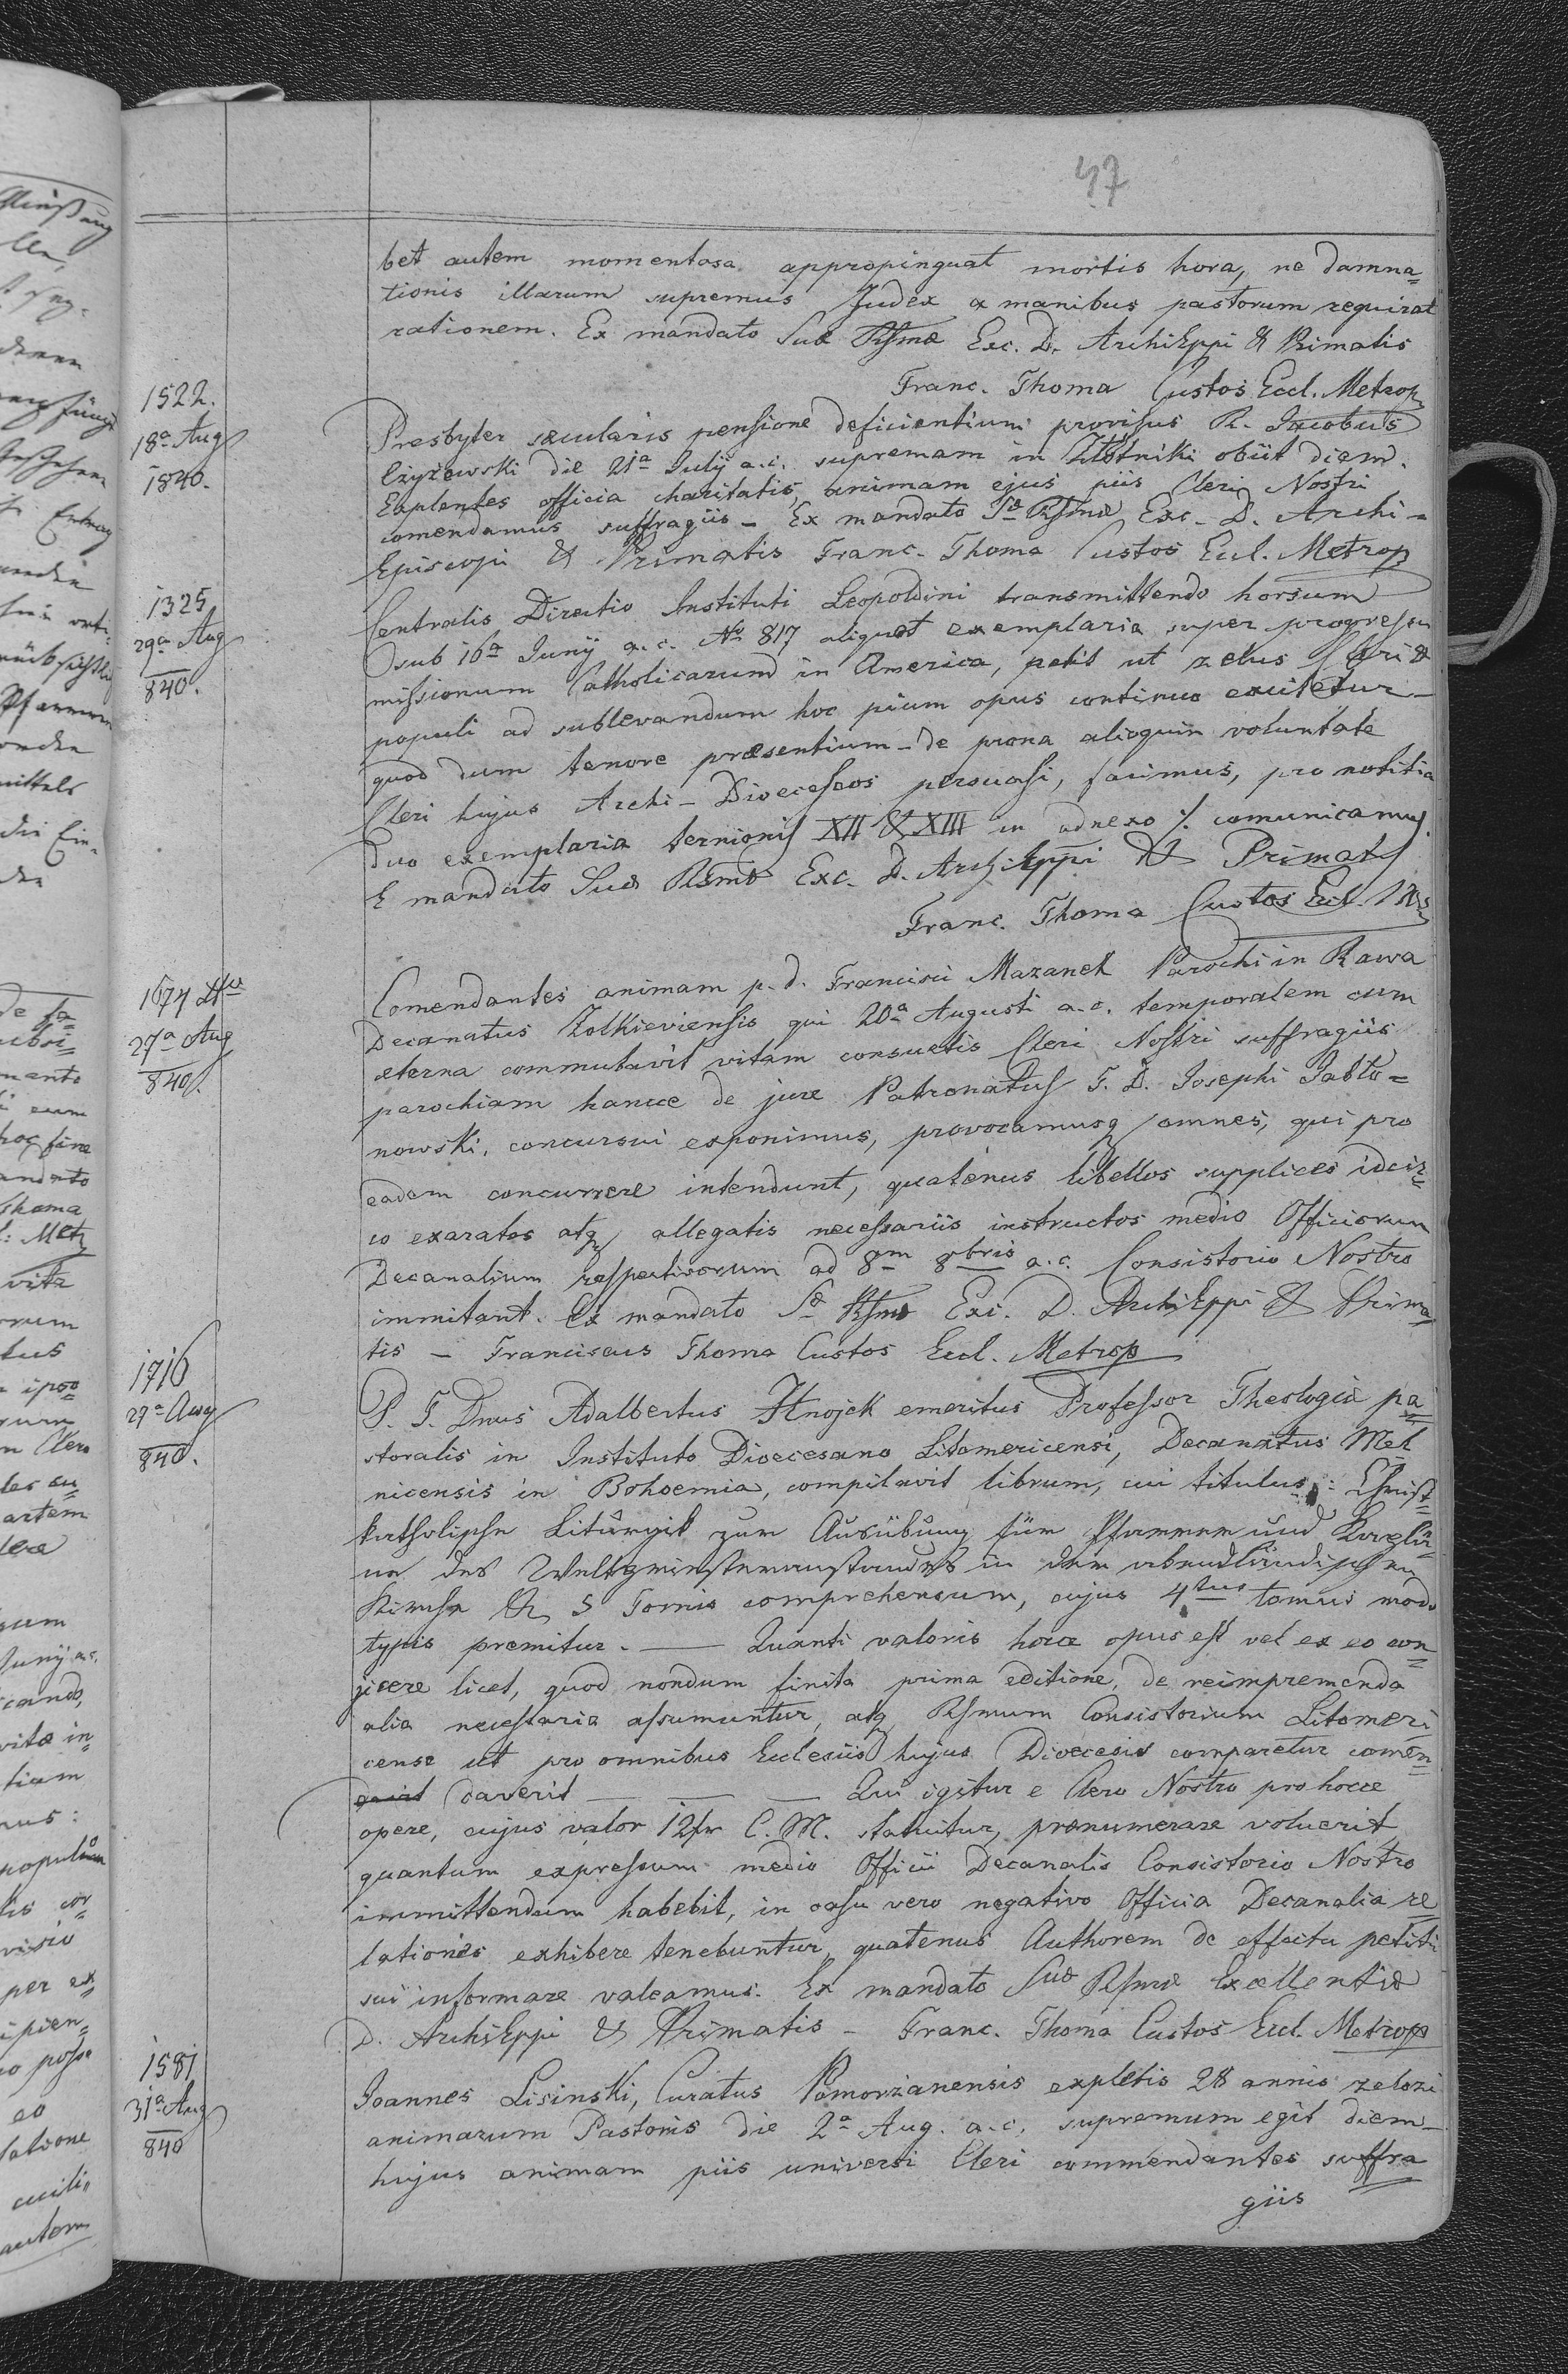 47
bet autem momentosa appropinquat mortis hora, ne damna=
tionis illarum supremus Judex a manibus pastorum requirat
rationem. Ex mandato Suæ Rssmæ Exc. D. ArchiEppi & Primatis
Franc. Thoma Custos Eccl. Metrop
1522.
18a Aug
1840.
Presbyter sæcularis pensione deficientium provisus R. Jacobus
Czyżewski die 21a Julij a.c. supremam in Złotniki obiit diem.
Explentes officia charitatis, animam ejus piis Cleri Nostri
comendamus suffragiis – Ex mandato Sæ Rssmæ Exc. D. Archi=
Episcopi & Primatis Franc. Thoma Custos Eccl. Metrop
1325
29a Aug
840.
Centralis Directio Instituti Leopoldini transmittendo horsum
sub 16a Junij a.c. No 817 aliquot exemplaria super progressu
missionum Catholicarum in America, petit ut zelus Cleri &
populi ad sublevandum hoc pium opus continuo excitetur –
quod dum tenore præsentium – de prona alioquin voluntate
Cleri hujus Archi – Dioeceseos persuasi, facimus, pro notitia
duo exemplaria ternionis XII & XIII in adnexo ·/. comunicamus.
E mandato Suæ Rsmæ Exc. D. ArchiEppi & Primatis
Franc. Thoma Custos Eccl. M
1674
27a Aug
840.
Comendantes animam p. d. Francisci Mazanek Parochi in Rawa
Decanatus Zolkieviensis qui 20a Augusti a.c. temporalem cum
æterna commutavit vitam consuetis Cleri Nostri suffragiis
parochiam hance de jure Patronatus J. D. Josephi Jabło=
nowski, concursui exponimus, provocamusq omnes, qui pro
eadem concurrere intendunt, quatenus libellos supplices idcir=
co exaratos atq allegatis necessariis instructos medio Officiorum
Decanalium respectivorum ad 8m 8bris a.c. Consistorio Nostro
immitant. Ex mandato Sæ Rssmæ Exc. D. ArchiEppi & Prima
tis – Franciscus Thoma Custos Eccl. Metrop
1716
27a Aug
840.
P. T. Dnus Adalbertus Hnojek emeritus Professor Theologiæ pa=
storalis in Instituto Dioecesano Litomericensi, Decanatus Mel
nicensis in Bohoemia, compilavit librum, cui titulus: Christ=
katholische Liturgik zur Ausübung für Pfarrer und Kaplä=
ne des Weltpriesterstandes in der abendländischen
Kirche & 5 Tomis comprehensum, cujus 4tus tomus modo
typis premitur. — Quanti valoris hocce opus est vel ex eo con=
jicere licet, quod nondum finita prima editione, de reimpremenda
alia necessaria assumuntur, atq Rsmum Consistorium Litomeri
cense ut pro omnibus Ecclesiis hujus Dioecesis comparetur comen=
daverit — — Qui igitur e Clero Nostro pro hocce
opere, cujus valor 12 fr C. M. statuitur, prænumerare voluerit
quantum expressum medio Officii Decanalis Consistorio Nostro
immittendum habebit, in casu vero negativo Officia Decanalia re
lationes exhibere tenebuntur, quatenus Authorem de effectu petiti
sui informare valeamus. Ex mandato Suæ Rssmæ Excellentiæ
D. ArchiEppi & Primatis – Franc. Thoma Custos Eccl. Metrop
1581
31a Aug
840
Joannes Lisinski, Curatus Pomorzanensis expletis 28 annis zelozi
animarum Pastoris die 2a Aug. a.c. supremum egit diem –
hujus animam piis universi Cleri commendantes suffra
giis